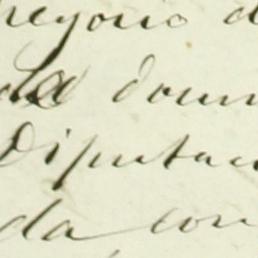 regorio d
La doum
Diputac
da con